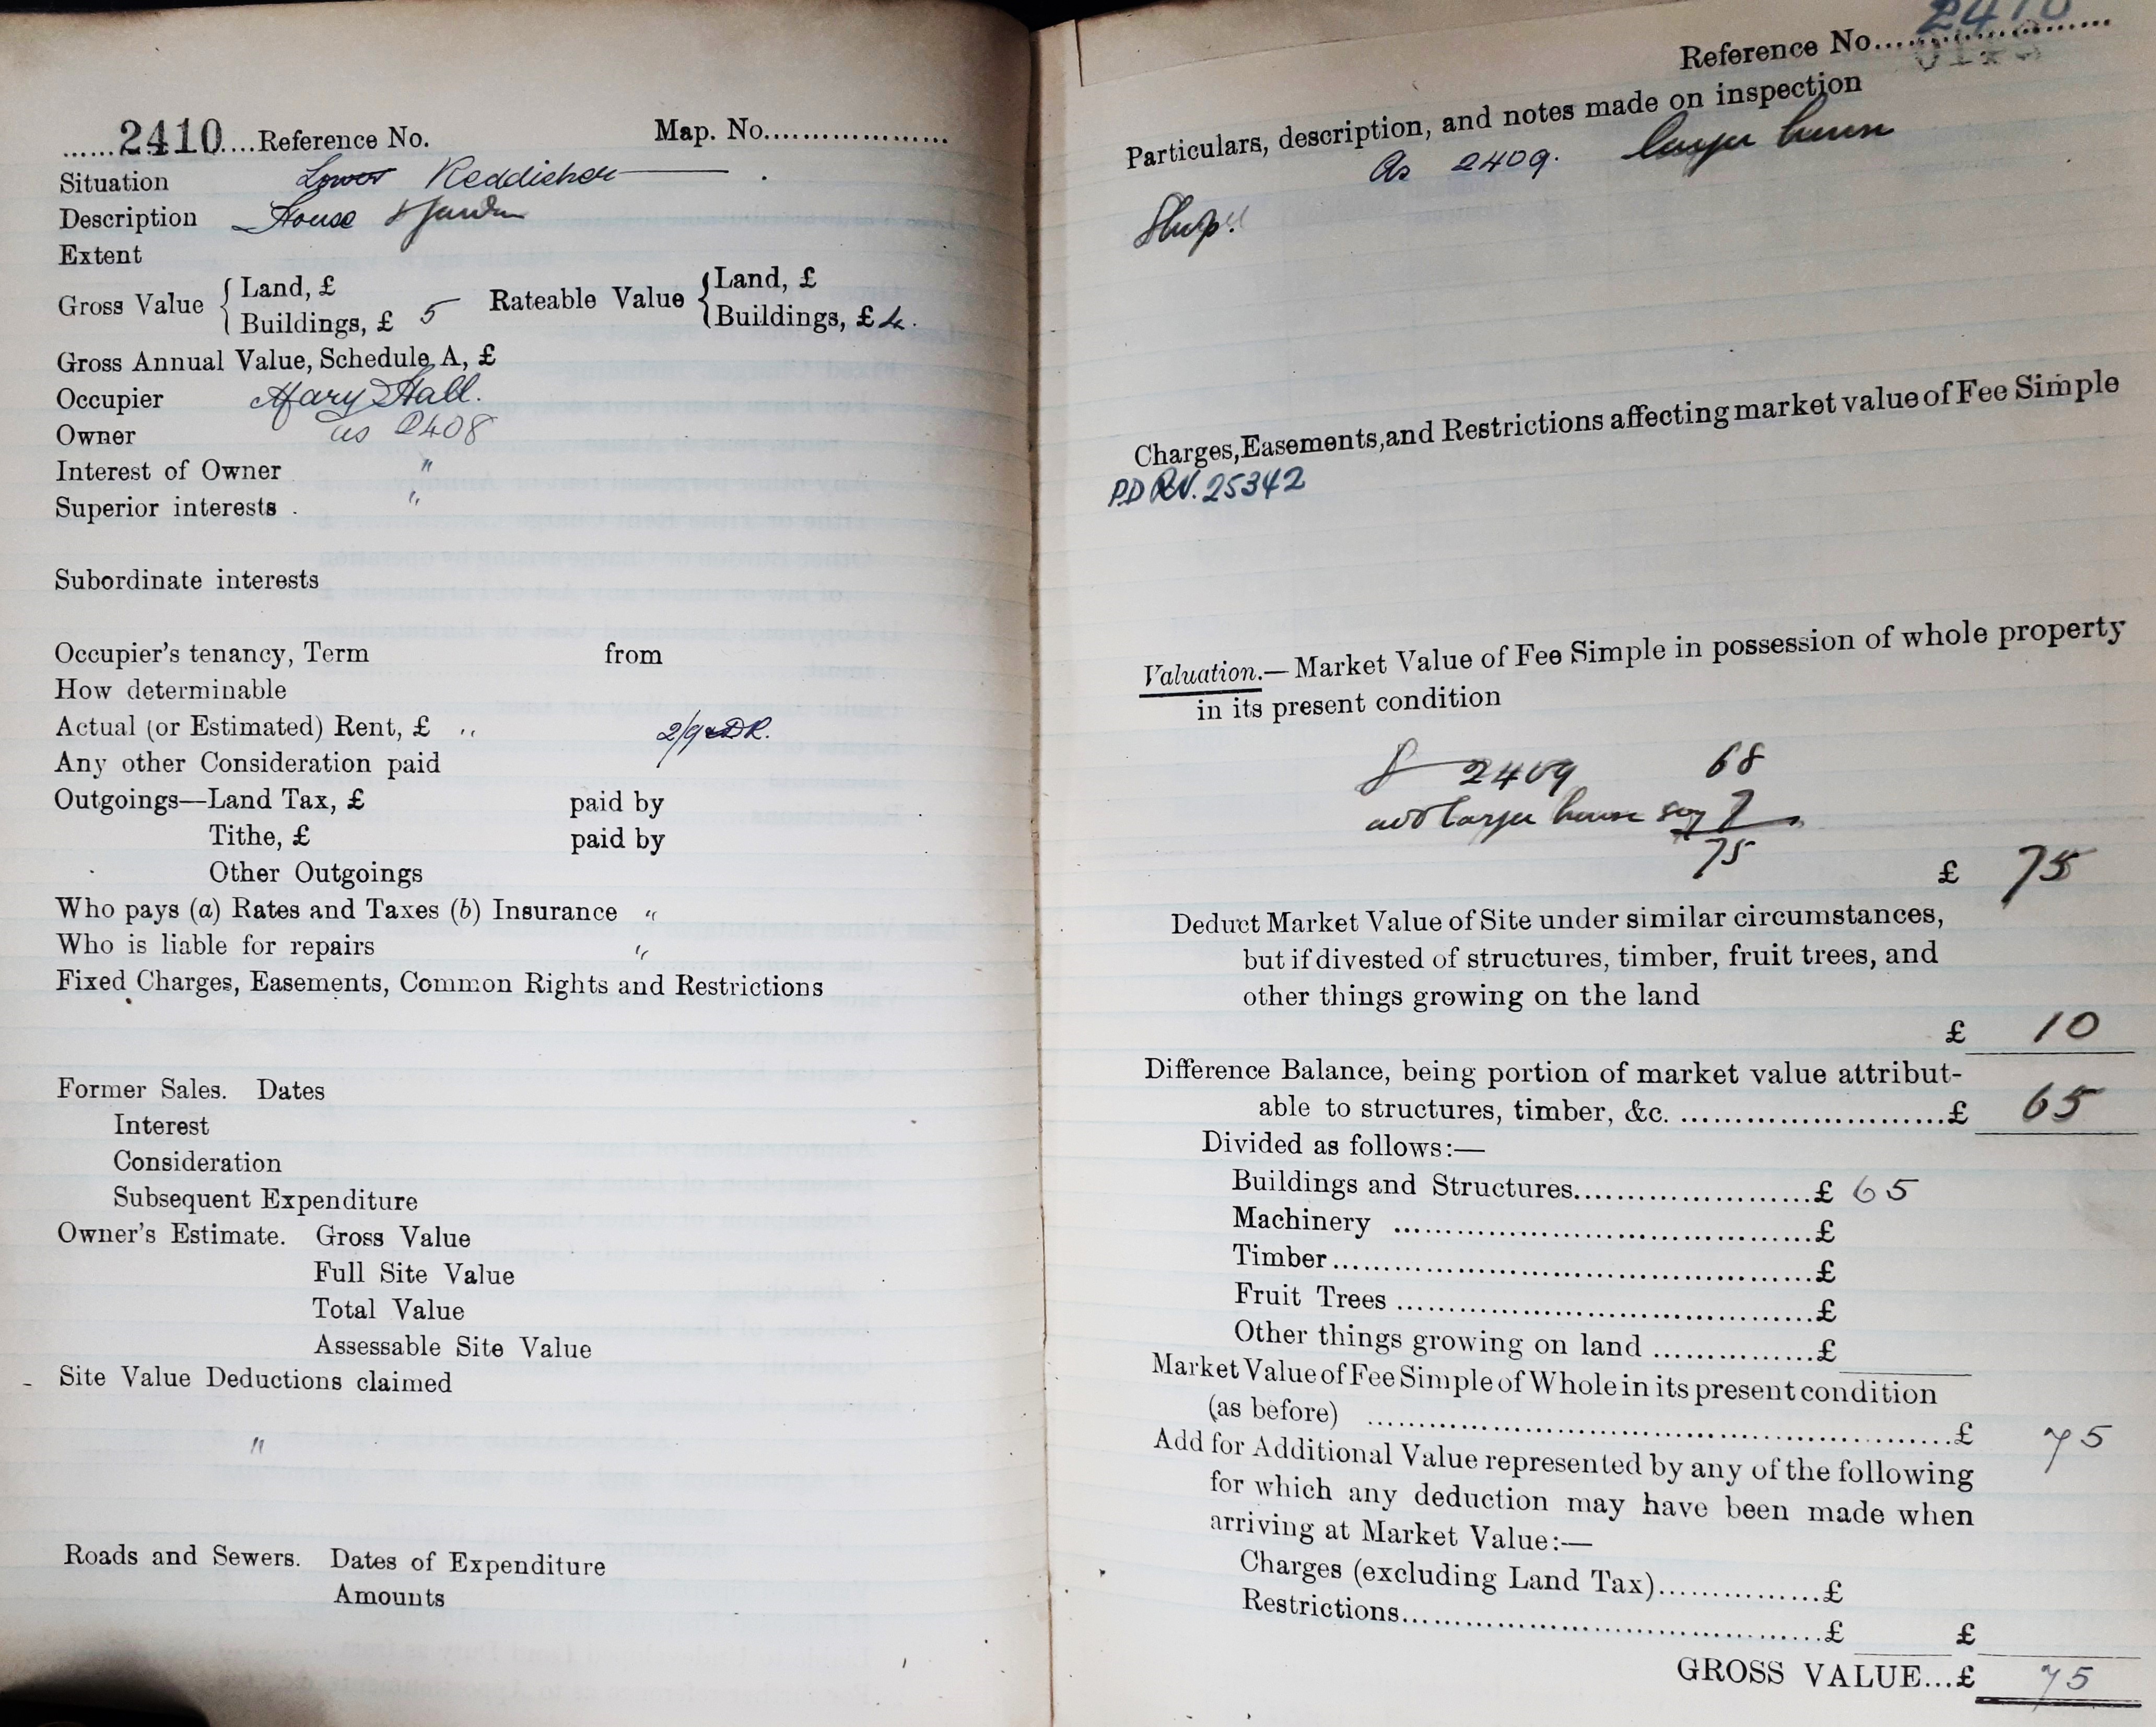 ......2410....Reference No. Map. No...................
Situation Lower Reddicher .
Description House & Garden
Extent
Gross Value { Land, £
Buildings, £ 5 Rateable Value { Land, £
Buildings, £ 4.
Gross Annual Value, Schedule A, £
Occupier Mary Hall.
Owner as 2408
Interest of Owner "
Superior interests . "
Subordinate interests
Occupier's tenancy, Term from
How determinable
Actual (or Estimated) Rent, £ " 2/9
Any other Consideration paid
Outgoings—Land Tax, £ paid by
Tithe, £ paid by
Other Outgoings
Who pays (a) Rates and Taxes (b) Insurance "
Who is liable for repairs "
Fixed Charges, Easements, Common Rights and Restrictions
Former Sales. Dates
Interest
Consideration
Subsequent Expenditure
Owner's Estimate. Gross Value
Full Site Value
Total Value
Assessable Site Value
Site Value Deductions claimed
"
Roads and Sewers. Dates of Expenditure
Amounts
Reference No. 2410
Particulars, description, and notes made on inspection
As 2409. larger house
Charges, Easements, and Restrictions affecting market value of Fee Simple
P.D RN. 25342
Valuation.—Market Value of Fee Simple in possession of whole property
in its present condition
2409 68
add larger house say 7
75
£ 75
Deduct Market Value of Site under similar circumstances,
but if divested of structures, timber, fruit trees, and
other things growing on the land
£ 10
Difference Balance, being portion of market value attribut-
able to structures, timber, &c. ..........................£ 65
Divided as follows:—
Buildings and Structures.......................£ 65
Machinery .......................................£
Timber.............................................£
Fruit Trees .......................................£
Other things growing on land ...............£
Market Value of Fee Simple of Whole in its present condition
(as before) ..........................................................£ 75
Add for Additional Value represented by any of the following
for which any deduction may have been made when
arriving at Market Value:—
Charges (excluding Land Tax)...............£
Restrictions.......................................£ £
GROSS VALUE...£ 75